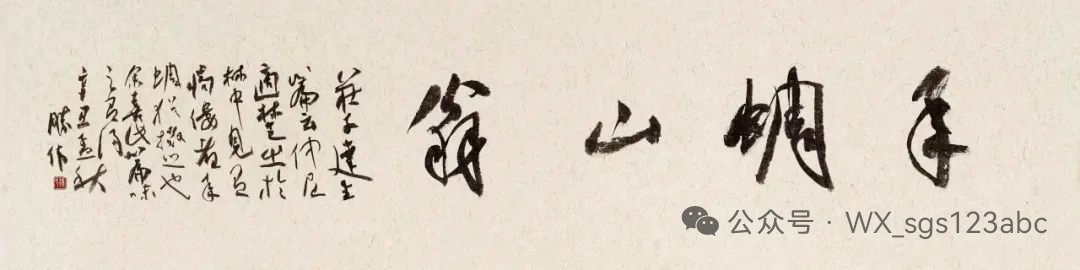 承蜩山翁
莊子達生
篇云仲尼
適楚出於
林中見
痀僂者承
蜩猶掇之也
余喜此篇
辛丑孟秋
勝偉
公众号 · WX_sgs123abc